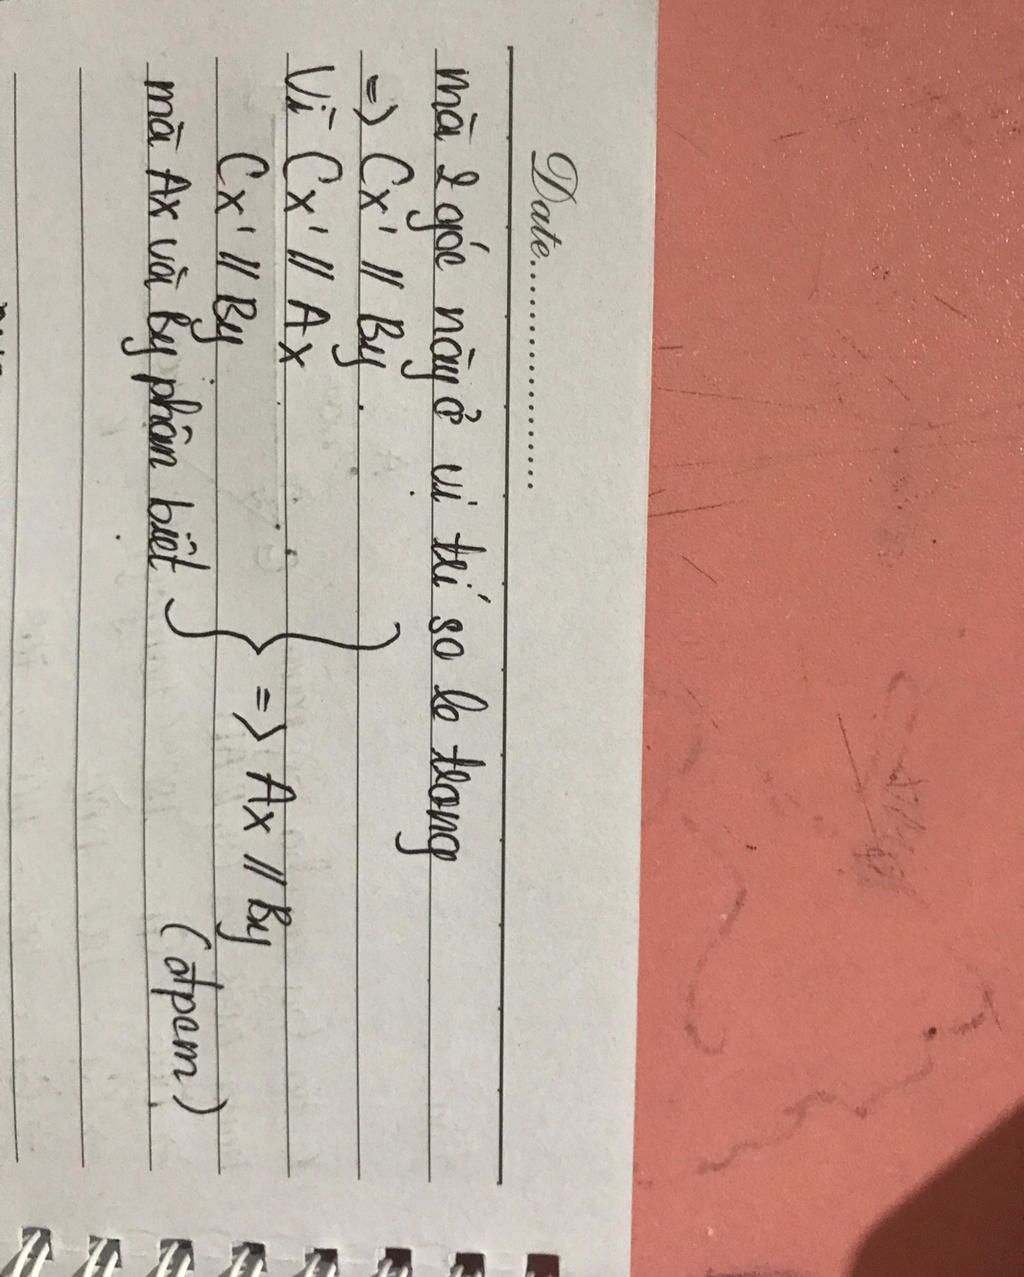 Date........................
mà 2 góc này ở vị trí so le trong
=> Cx' // By
Vì Cx' // Ax
Cx' // By
mà Ax và By phân biệt } => Ax // By
(đpcm)